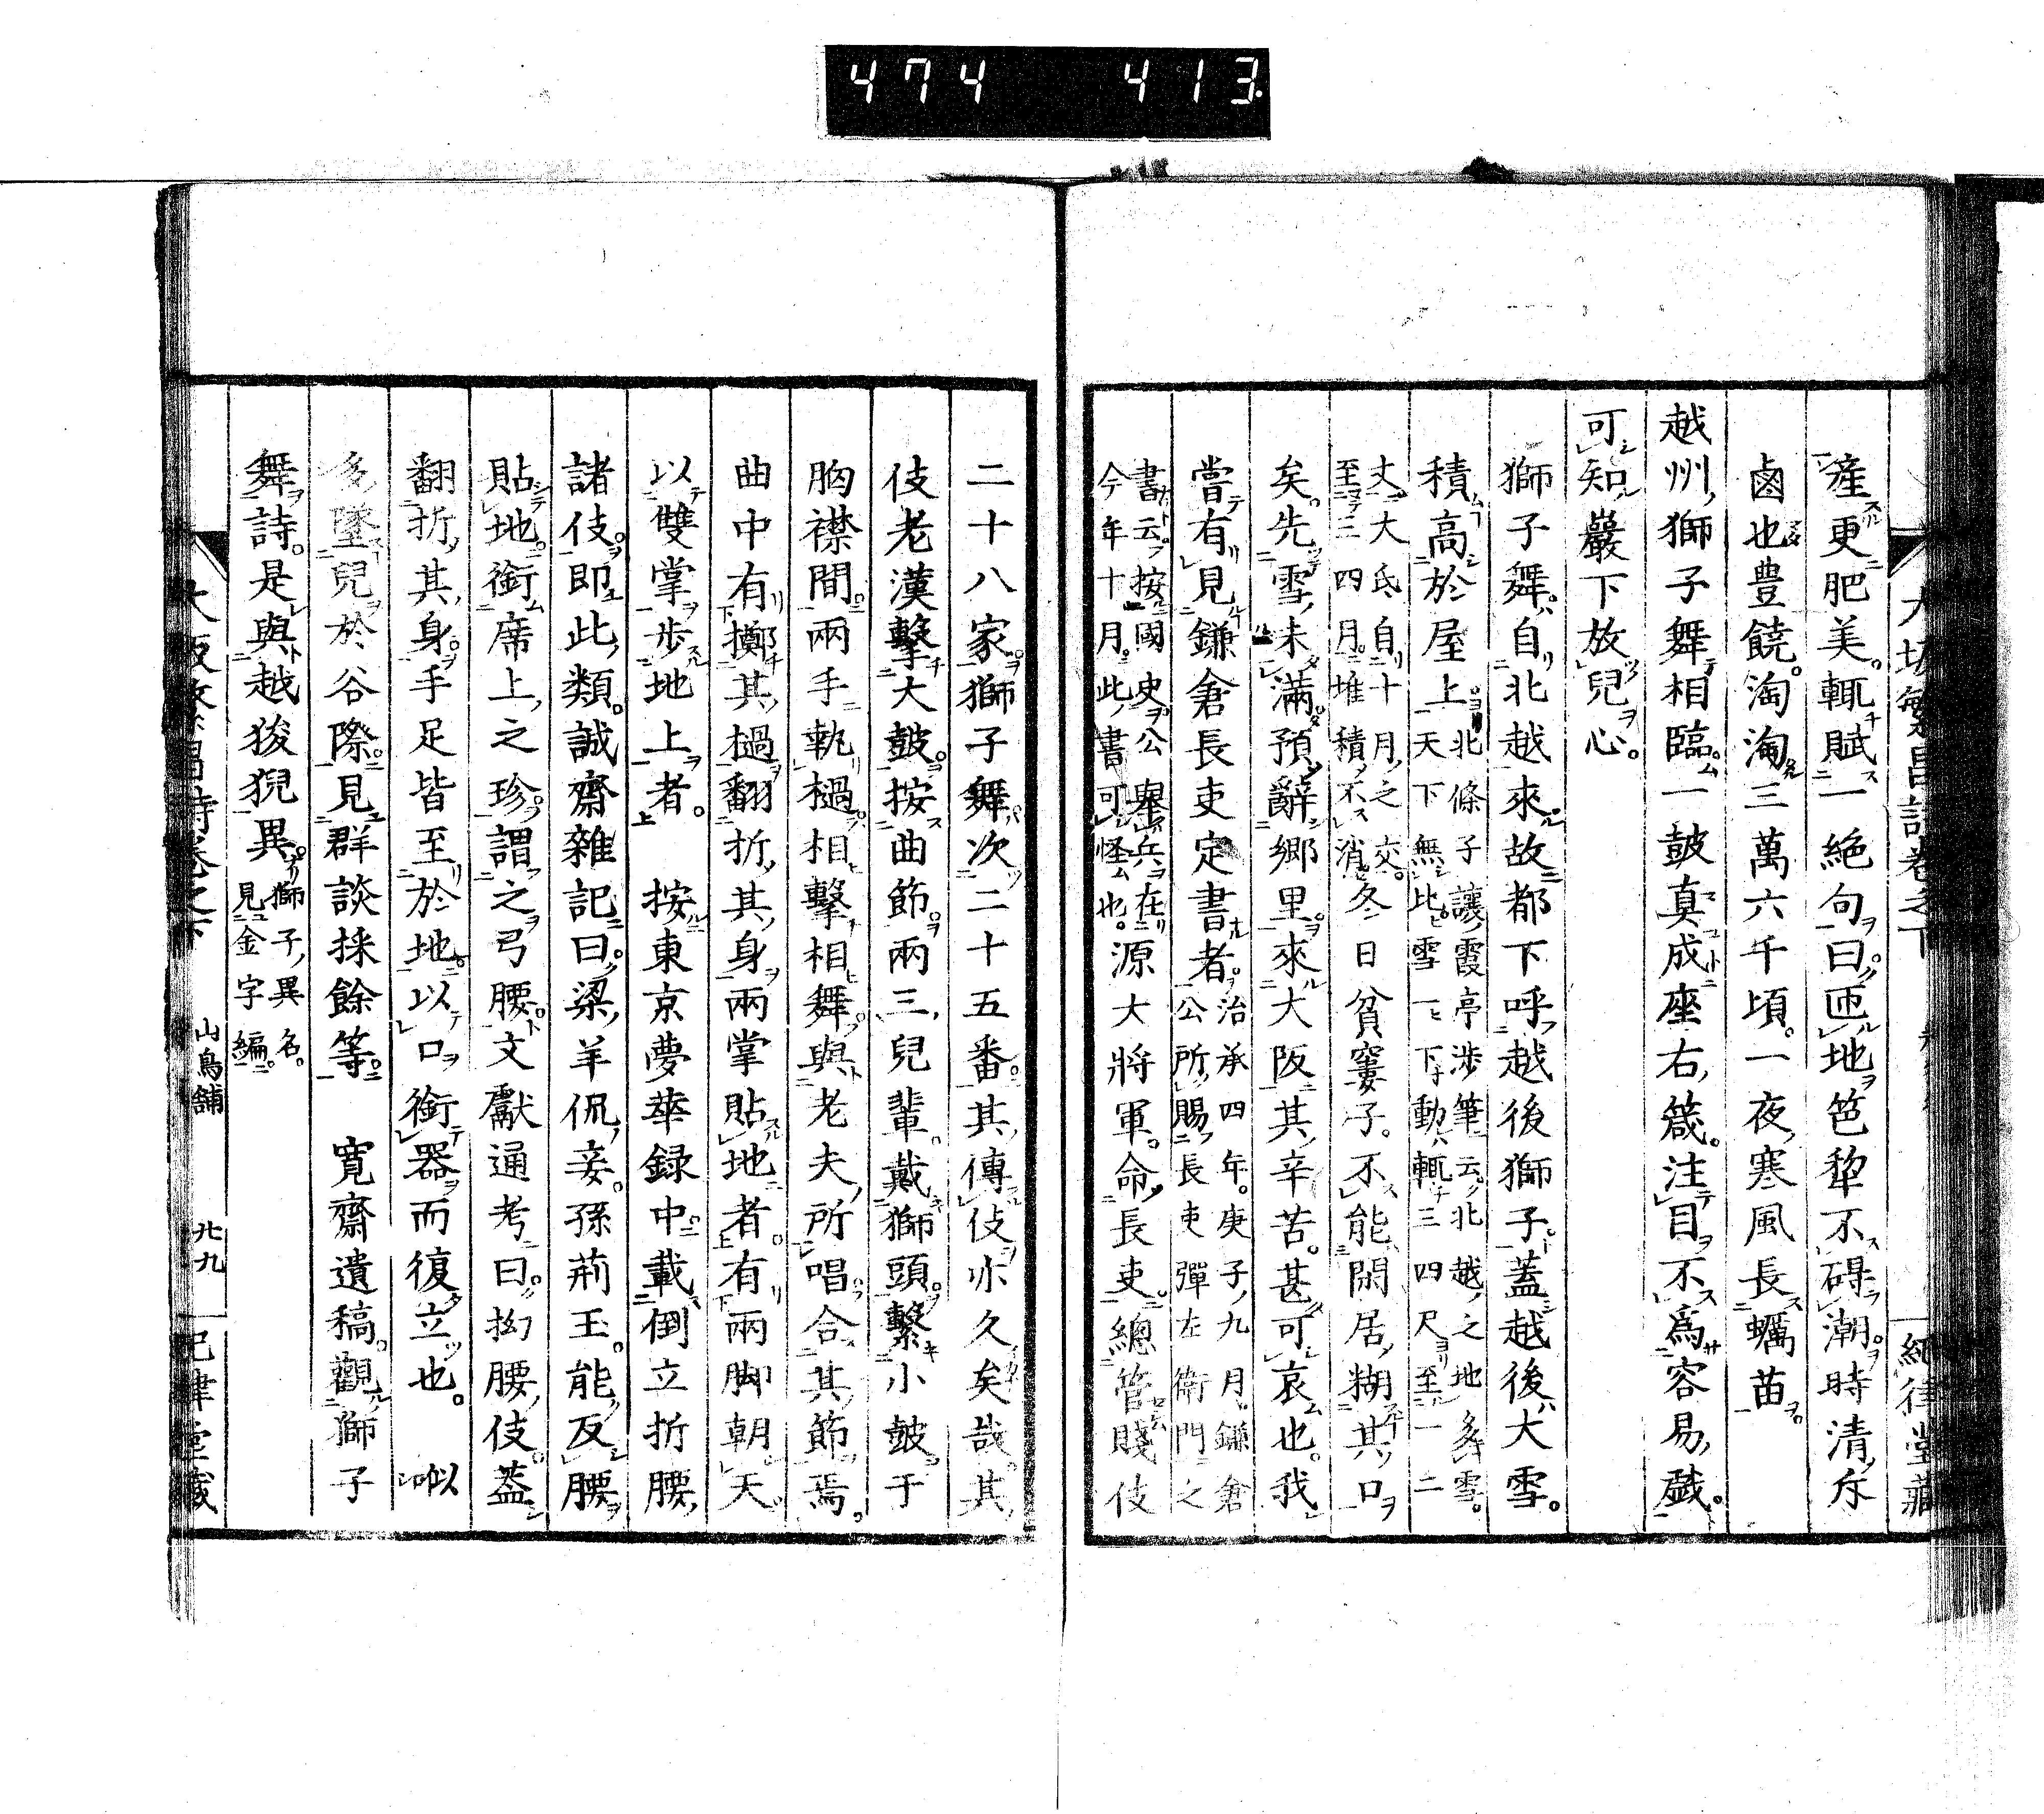 474 413
大坂繁昌詩卷之下
紀律堂藏
產更肥美。輒賦一絕句曰。匝地笆犂不碍潮。時清斥
鹵也豊饒。淘淘三萬六千頃。一夜寒風長蠣苗
越州獅子舞相臨。一鼓真成座右箴。注目不爲容易戲。
可知巖下放兒心。
獅子舞。自北越來。故都下呼越後獅子。蓋越後大雪。
積高於屋上。
北條子讓霞亭渉筆云。北越之地多雪。
天下無比。雪一下動輒三四尺至一二
丈。大氐自十月之交。
至三四月。堆積不消。
冬日貧窶子。不能閑居糊其口
矣。先雪未滿預辭鄉里。來大阪。其辛苦。甚可哀也。我
嘗有見鎌倉長吏定書者。
治承四年。庚子九月。鎌倉
公所賜長吏彈左衛門之
書云。按國史公舉兵在
今年十月。此書可怪也。
源大將軍。命長吏。總管賤伎
二十八家。獅子舞次二十五番。其傳伎亦久矣哉。其
伎老漢擊大鼓。按曲節。兩三兒輩。戴獅頭。繫小鼓于
胸襟間。兩手執檛相擊相舞。與老夫所唱合其節焉。
曲中有擲其檛翻折其身。兩掌貼地者。有兩脚朝天。
以雙掌步地上者。 按東京夢華録中。載倒立折腰
諸伎。即此類。誠齋雜記曰。梁羊侃妾。孫荊玉。能反腰
貼地。銜席上之珍。謂之弓腰。文獻通考曰。拗腰伎。蓋
翻折其身。手足皆至於地。以口銜器而復立也。 似
多墜兒於谷際。見群談採餘等。 寛齋遺稿。觀獅子
舞詩。是與越狻猊異。
獅子異名。
見金字編。
大阪繁昌詩卷之下
山鳥舖
廿九
紀律堂藏